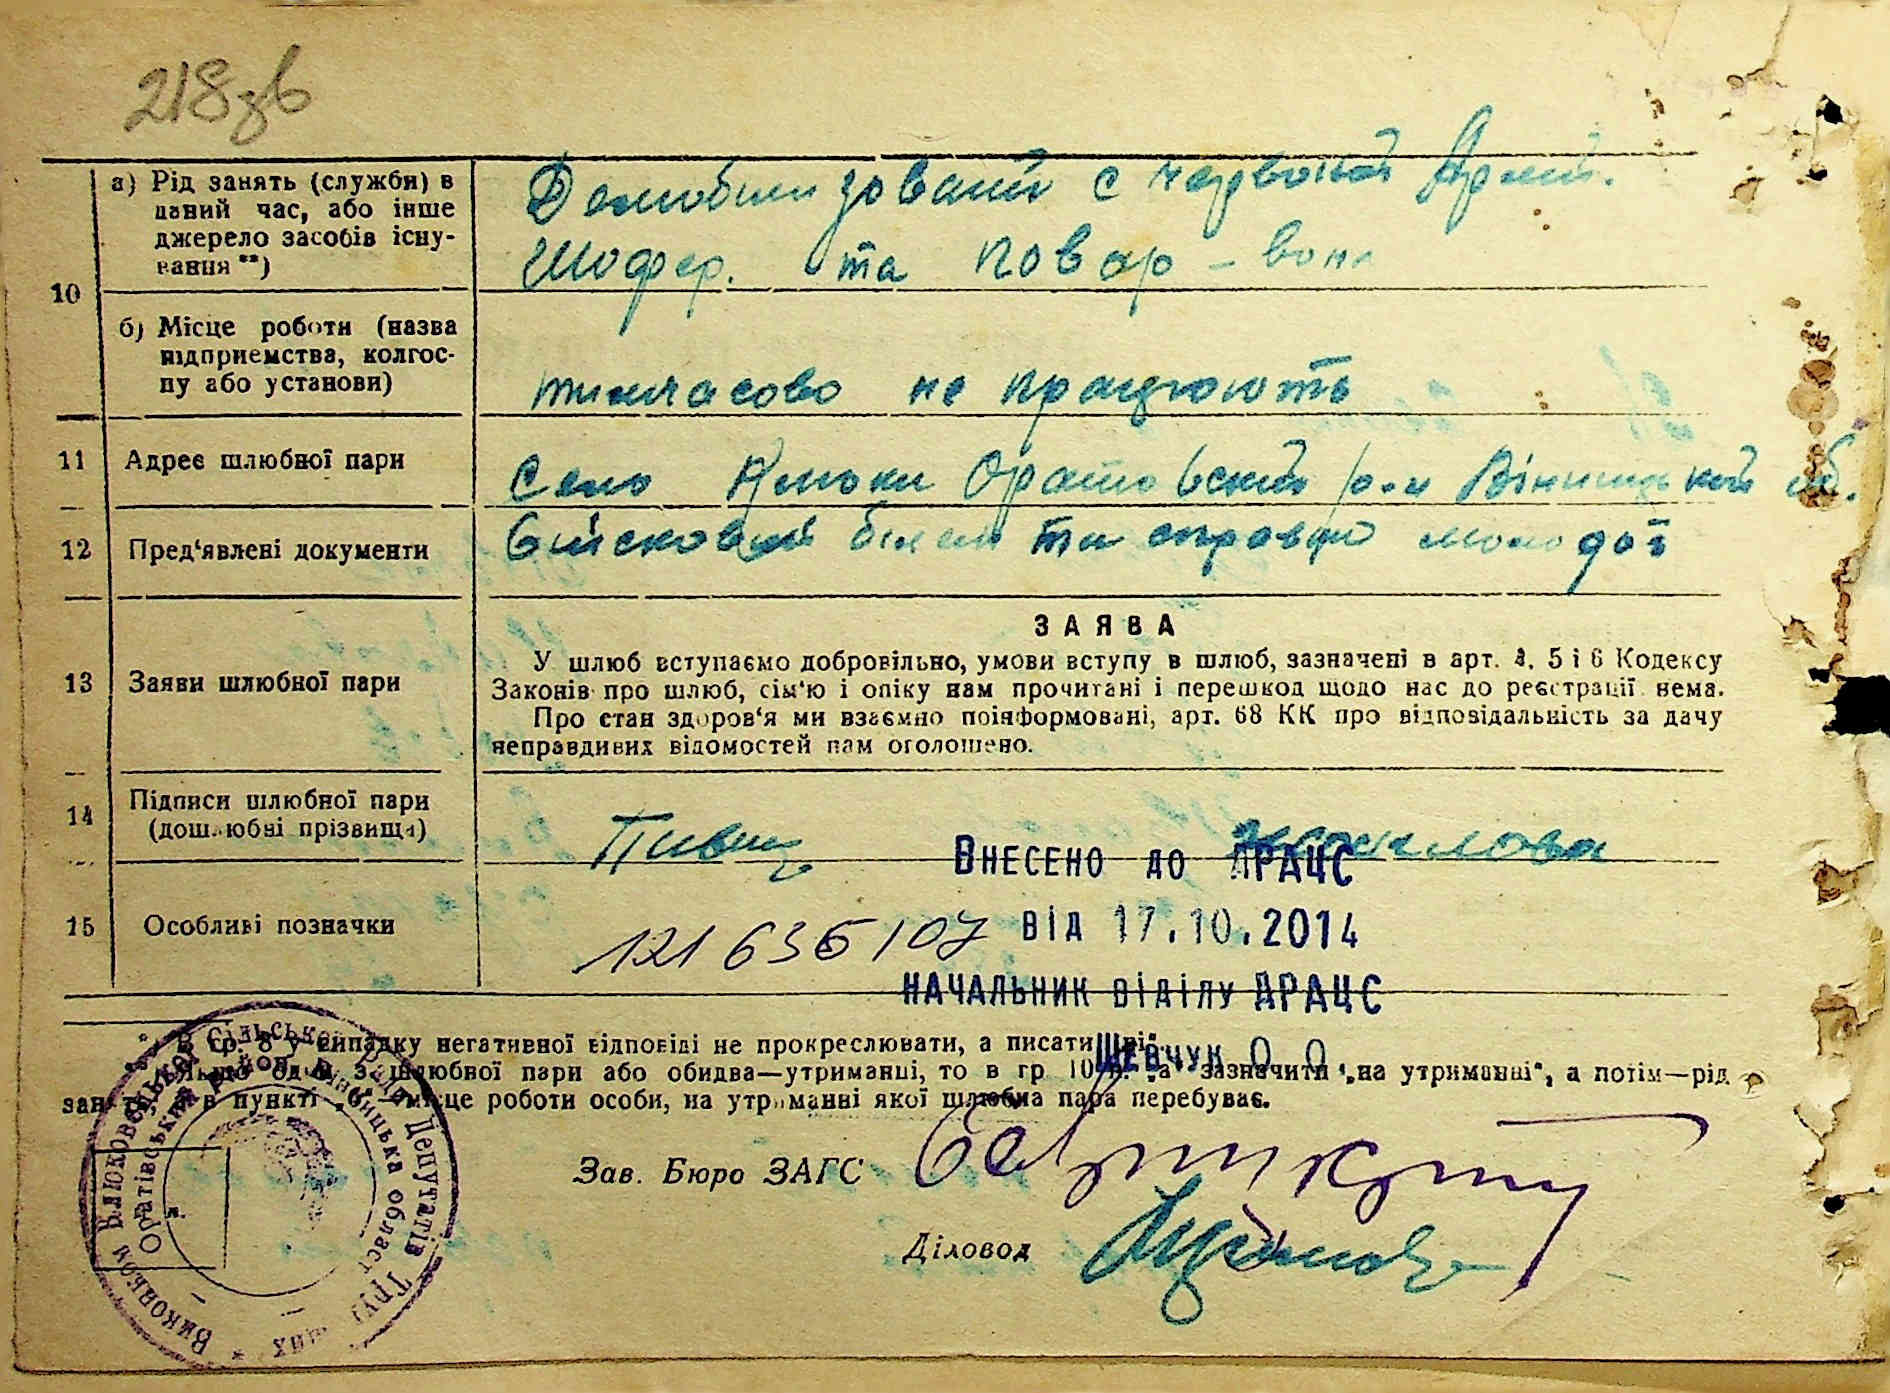 218 зв
а) Рід занять (служби) в
даний час, або інше
джерело засобів існу-
вання **)
Демобилизований с червоной Армії.
Шофер. та повар - вона
10
б) Місце роботи (назва
підприємства, колгос-
пу або установи)
тимчасово не працюють
11 Адрес шлюбної пари
Село Клюки Оратовский р-н Вінницькой об.
12 Пред'явлені документи
Війсковий білет та справка молодої
ЗАЯВА
13 Заяви шлюбної пари
У шлюб вступаємо добровільно, умови вступу в шлюб, зазначені в арт. 4, 5 і 6 Кодексу
Законів про шлюб, сім'ю і опіку нам прочитані і перешкод щодо нас до реєстрації нема.
Про стан здоров'я ми взаємно поінформовані, арт. 68 КК про відповідальність за дачу
неправдивих відомостей нам оголошено.
14 Підписи шлюбної пари
(дошлюбні прізвища)
Пивец
ВНЕСЕНО ДО ДРАЦС
15 Особливі позначки
121636107
ВІД 17.10.2014
НАЧАЛЬНИК ВІДІЛУ ДРАЦС
ШЕВЧУК О.О.
В гр. 8 у випадку негативної відповіді не прокреслювати, а писати „ні".
Якщо один з шлюбної пари або обидва—утриманці, то в гр 10 п. „а" зазначити „на утриманні", а потім—рід
занять, а в пункті „б"—місце роботи особи, на утриманні якої шлюбна пара перебуває.
Виконком Клюковецької Сільської Ради Депутатів Трудящих
Оратівський район Вінницька област
Зав. Бюро ЗАГС
Діловод